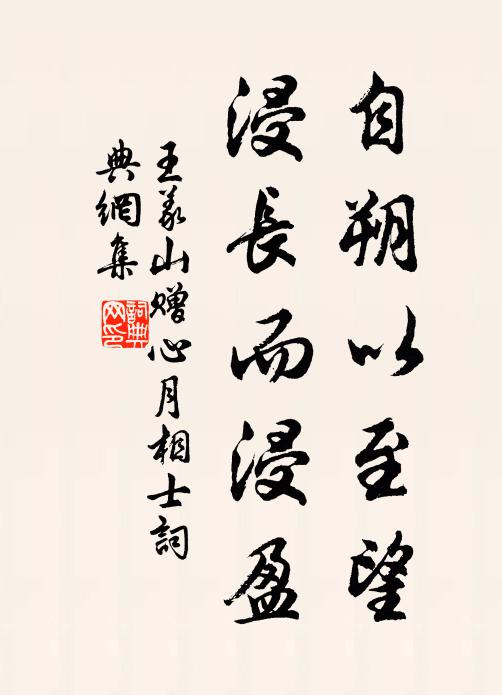 自朔以至望
浸長而浸盈
王义山赠心月相士詞
典網集
詞典
网印